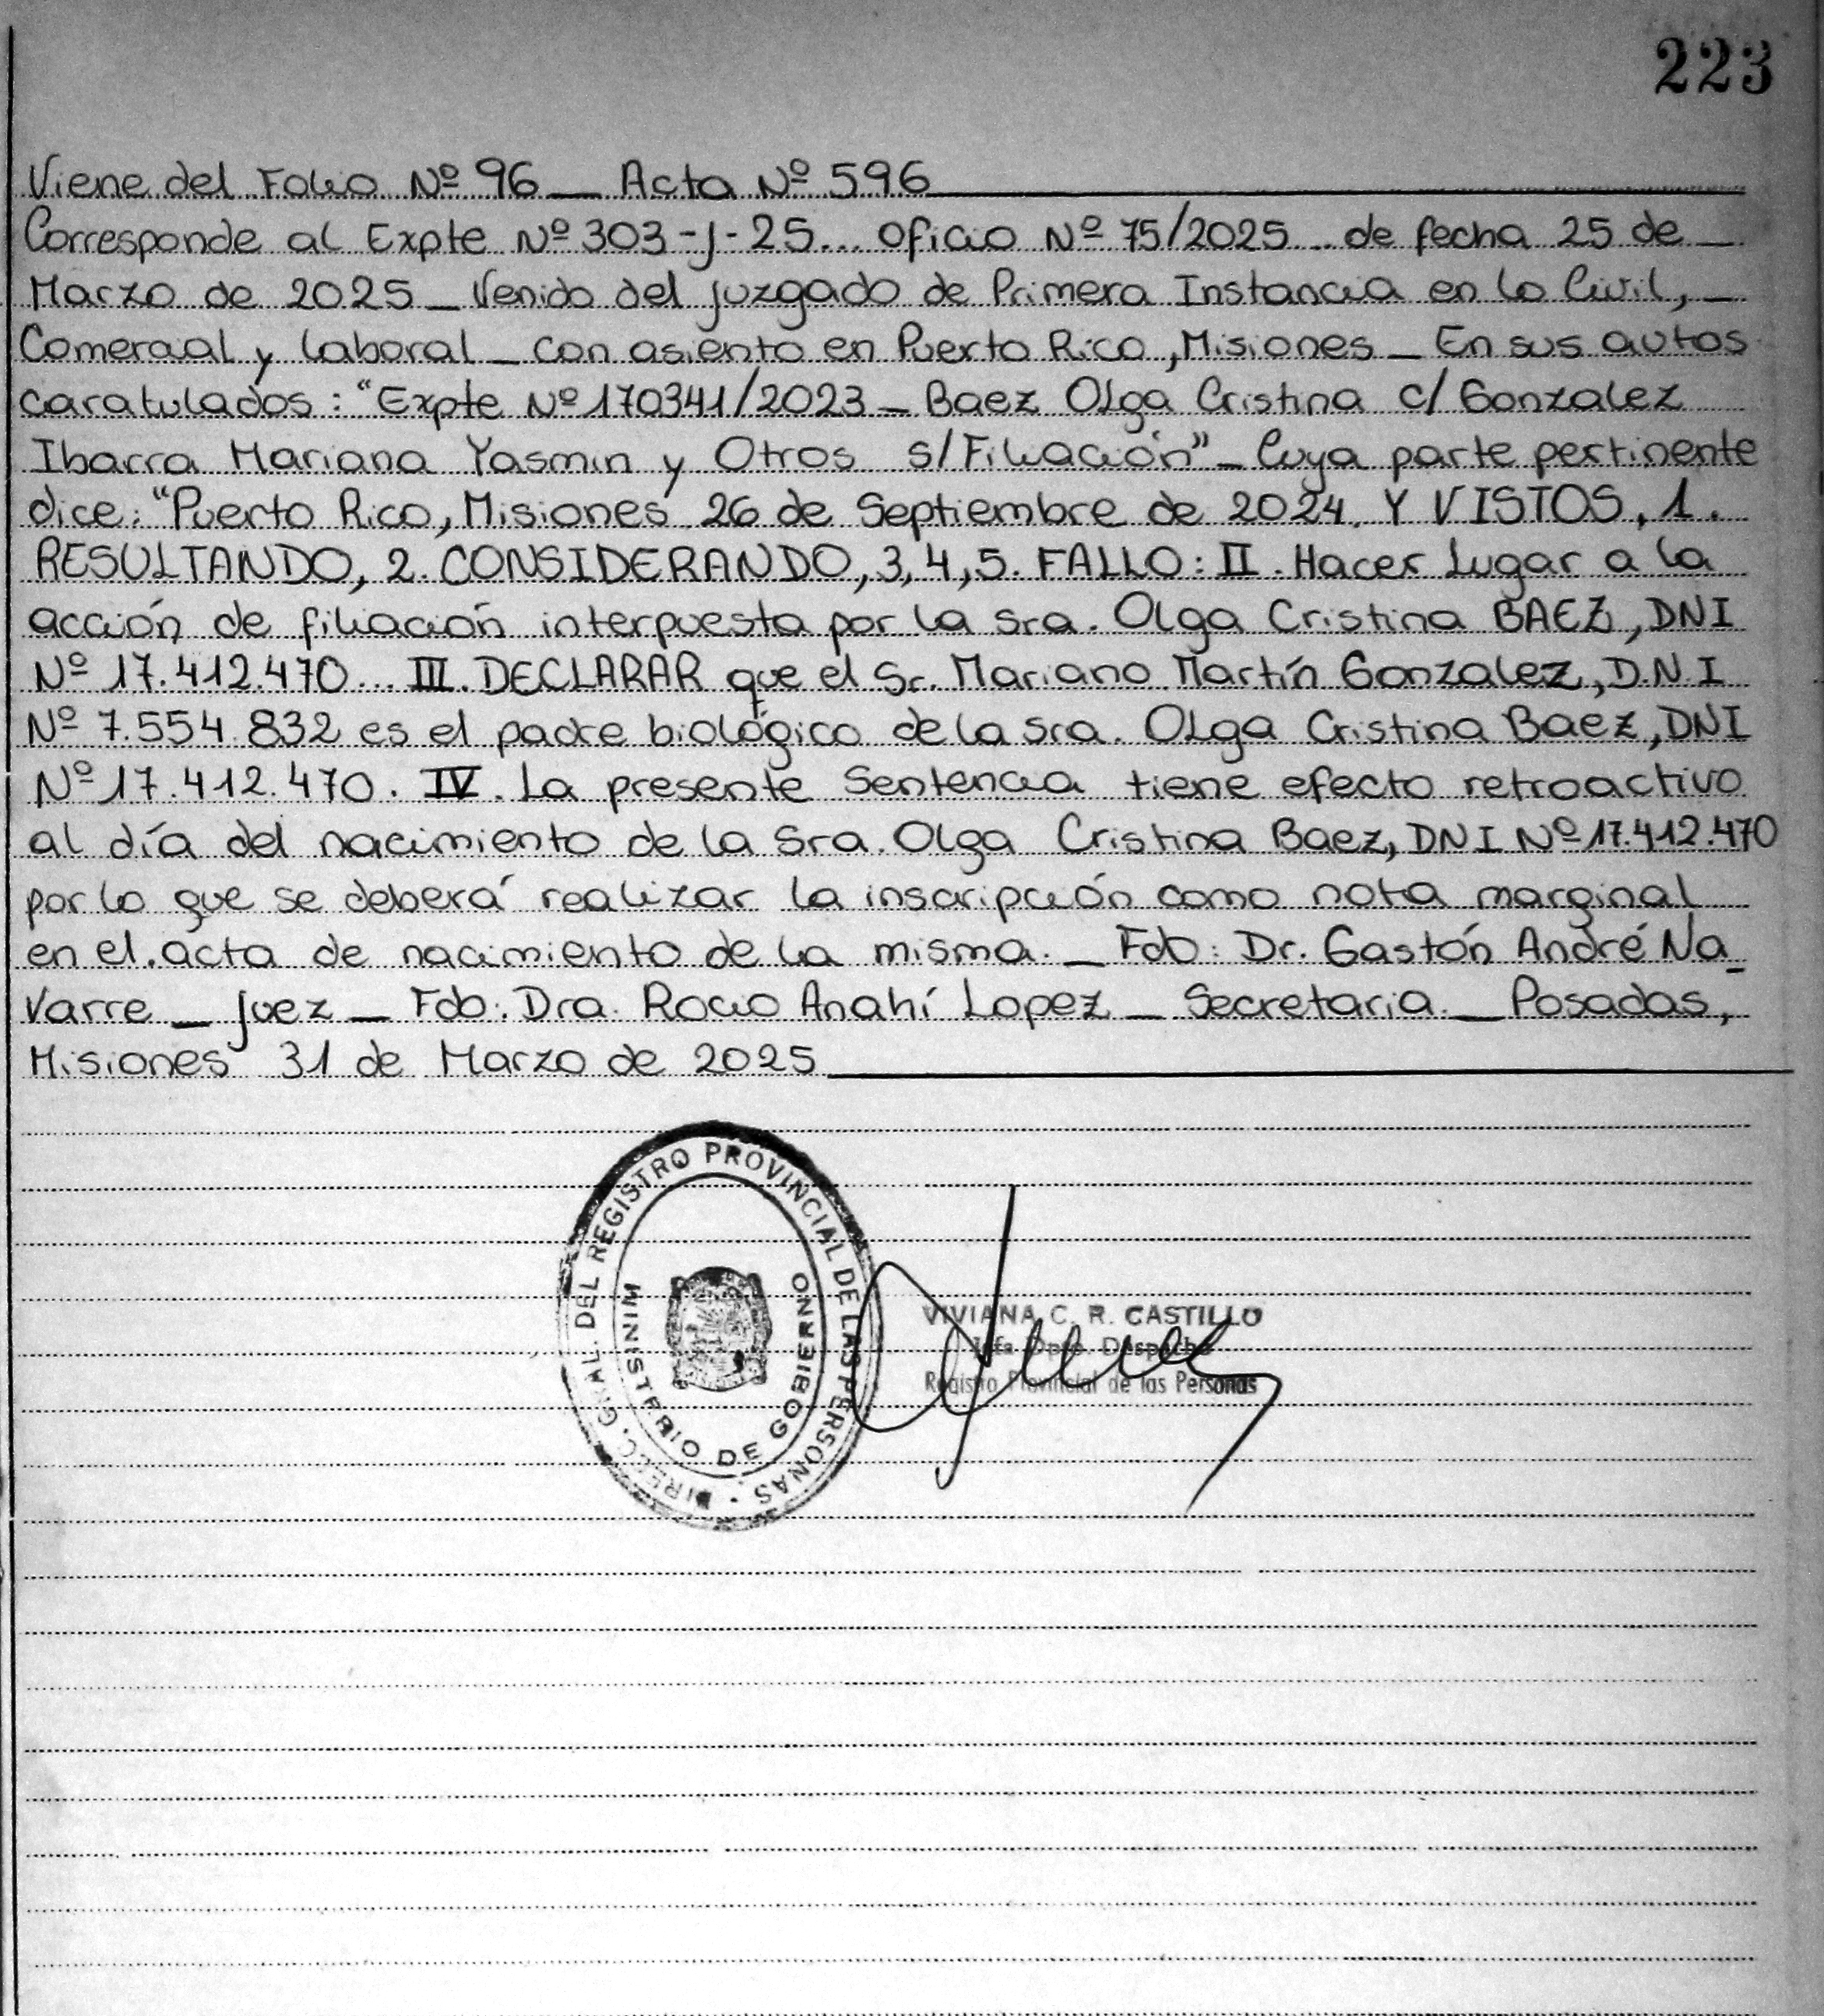 223
Viene del Folio Nº 96 _ Acta Nº 596
Corresponde al Expte Nº 303-J-25... Oficio Nº 75/2025... de fecha 25 de _
Marzo de 2025 _ Venido del Juzgado de Primera Instancia en lo Civil, _
Comercial y Laboral _ con asiento en Puerto Rico, Misiones _ En sus autos
caratulados: "Expte Nº 170341/2023 _ Baez Olga Cristina c/ Gonzalez
Ibarra Mariana Yasmin y Otros s/Filiación" _ Cuya parte pertinente
dice: "Puerto Rico, Misiones 26 de Septiembre de 2024. Y VISTOS, 1.
RESULTANDO, 2. CONSIDERANDO, 3, 4, 5. FALLO: II. Hacer Lugar a la
acción de filiación interpuesta por la Sra. Olga Cristina BAEZ, DNI
Nº 17.412.470... III. DECLARAR que el Sr. Mariano Martín Gonzalez, D.N.I
Nº 7.554.832 es el padre biológico de la Sra. Olga Cristina Baez, DNI
Nº 17.412.470. IV. La presente Sentencia tiene efecto retroactivo
al día del nacimiento de la Sra. Olga Cristina Baez, DNI Nº 17.412.470
por lo que se deberá realizar la inscripción como nota marginal
en el acta de nacimiento de la misma. _ Fdo: Dr. Gastón André Na_
varre _ Juez _ Fdo: Dra. Rocio Anahí Lopez _ Secretaria. _ Posadas,
Misiones 31 de Marzo de 2025
DIRECC. GRAL. DEL REGISTRO PROVINCIAL DE LAS PERSONAS
MINISTERIO DE GOBIERNO
VIVIANA C. R. CASTILLO
Jefa Dpto. Despacho
Registro Provincial de las Personas